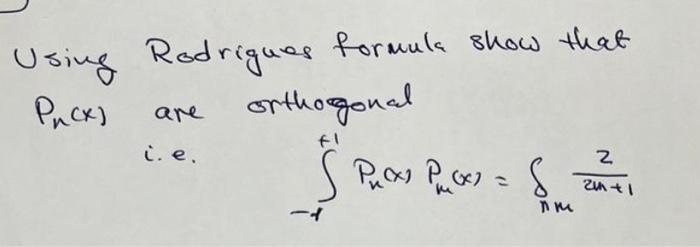 Using Rodrigues formula show that
Pn(x) are orthogonal
i.e. ∫_{-1}^{+1} Pn(x) Pm(x) = δ_{nm} 2/(2n+1)